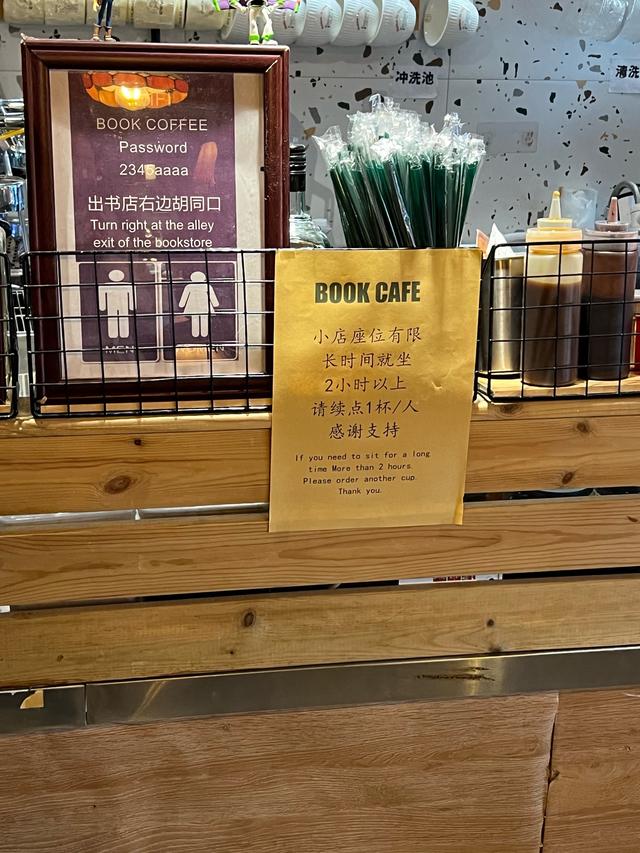 冲洗池
清洗
BOOK COFFEE
Password
2345aaaa
出书店右边胡同口
Turn right at the alley
exit of the bookstore
MEN
BOOK CAFE
小店座位有限
长时间就坐
2小时以上
请续点1杯/人
感谢支持
If you need to sit for a long
time More than 2 hours.
Please order another cup.
Thank you.